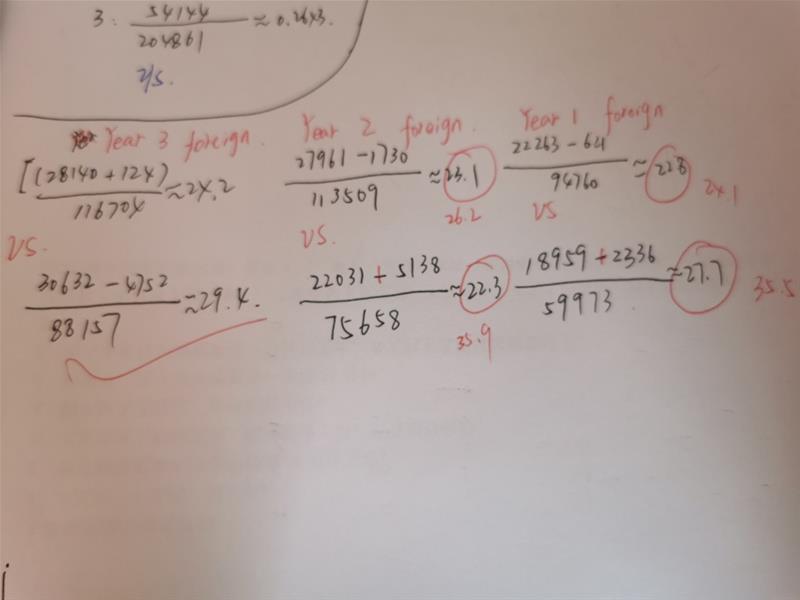 3: 54144 / 204861 ≈ 0.2643.
Year 3 foreign.
[(28140 + 124) / 116704 ≈ 24.2
VS.
30632 - 4752 / 88157 ≈ 29.4.
Year 2 foreign.
27961 - 1730 / 113509 ≈ 23.1
26.2
VS.
22031 + 5138 / 75658 ≈ 22.3
35.9
Year 1 foreign
22263 - 641 / 94760 ≈ 22.8
24.1
VS
18959 + 2336 / 59973 ≈ 27.7
35.5